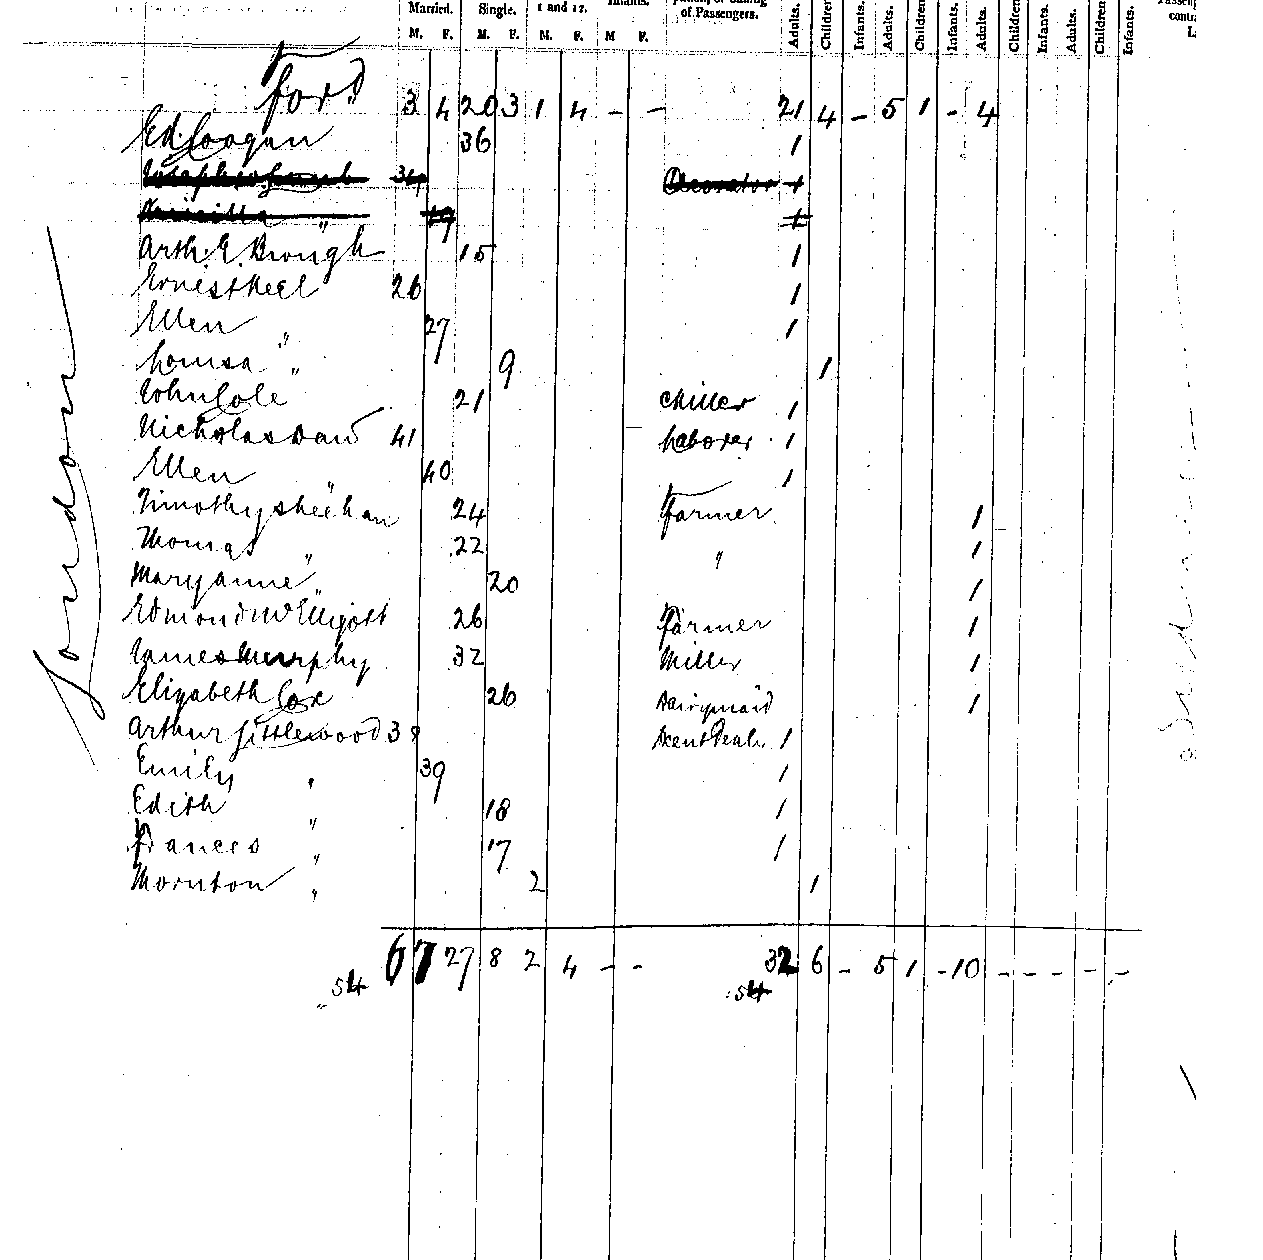 Married. Single. 1 and 12. Infants. of Passengers.
M. F. M. F. M. F. M F. Adults. Children Infants. Adults. Children Infants. Adults. Children Infants. Adults. Children Infants.
Ford 3 4 20 3 1 4 - - 21 4 - 5 1 - 4
Ed. Coogan 36 1
34 Decorator 1
" 39 1
Arth. E. Brough 15 1
Ernest Keel 26 1
Ellen " 27 1
Louisa " 9 1
John Cole 21 Miller 1
Nicholas Daw 41 Laborer 1
Ellen " 40 1
Timothy Sheehan 24 Farmer 1
Thomas " 22 " 1
Maryanne " 20 1
Edmond McElligott 26 Farmer 1
James Murphy 32 Miller 1
Elizabeth Cox 26 Dairymaid 1
Arthur Littlewood 38 1
Emily " 39 1
Edith " 18 1
Frances " 17 1
Thornton " 2 1
London
6 7 27 8 2 4 - - 32 6 - 5 1 - 10 - - - - -
54 54